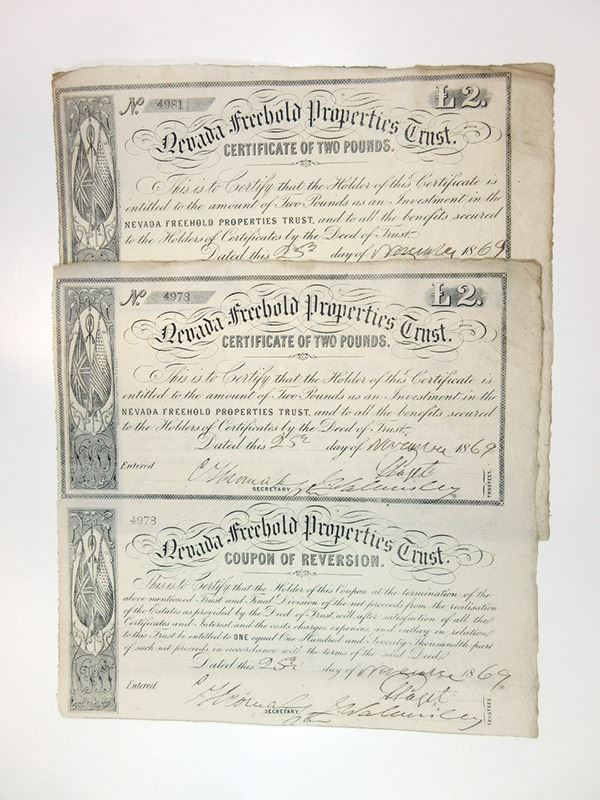 No. 4981
£2.
Nevada Freehold Properties Trust.
CERTIFICATE OF TWO POUNDS.
This is to Certify that the Holder of this Certificate is
entitled to the amount of Two Pounds as an Investment in the
NEVADA FREEHOLD PROPERTIES TRUST, and to all the benefits secured
to the Holders of Certificates by the Deed of Trust.
Dated this 25th day of November 1869
No. 4978
£2.
Nevada Freehold Properties Trust.
CERTIFICATE OF TWO POUNDS.
This is to Certify that the Holder of this Certificate is
entitled to the amount of Two Pounds as an Investment in the
NEVADA FREEHOLD PROPERTIES TRUST, and to all the benefits secured
to the Holders of Certificates by the Deed of Trust.
Dated this 25th day of November 1869
Entered
SECRETARY.
TRUSTEES.
4978
Nevada Freehold Properties Trust.
COUPON OF REVERSION.
This is to Certify that the Holder of this Coupon at the termination of the
above mentioned Trust and Final Division of the net proceeds from the realisation
of the Estates as provided by the Deed of Trust, will after satisfaction of all the
Certificates and Interest and the costs charges, expences, and outlay in relation
to this Trust be entitled to ONE equal One Hundred and Seventy Thousandth part
of such net proceeds in accordance with the terms of the said Deed.
Dated this 25th day of November 1869
Entered
SECRETARY.
TRUSTEES